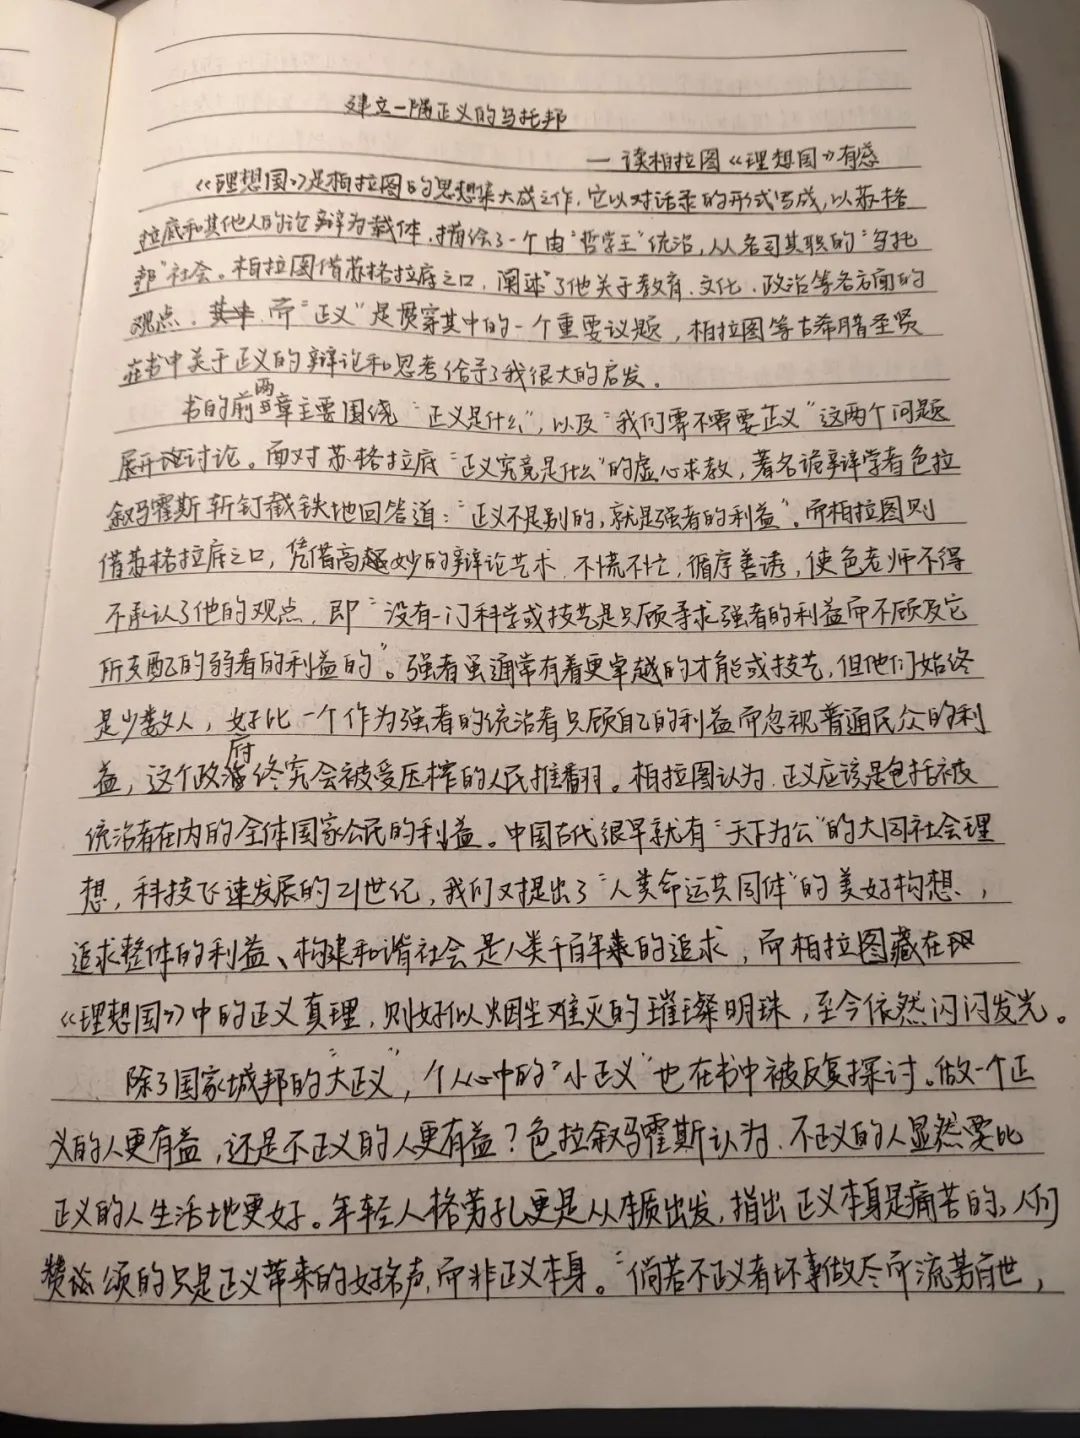 建立一隅正义的乌托邦
—读柏拉图《理想国》有感
《理想国》是柏拉图的思想集大成之作，它以对话录的形式写成，以苏格
拉底和其他人的论辩为载体，描绘了一个由“哲学王”统治，人人各司其职的“乌托
邦”社会。柏拉图借苏格拉底之口，阐述了他关于教育、文化、政治等各方面的
观点。其中，而“正义”是贯穿其中的一个重要议题，柏拉图等古希腊圣贤
在书中关于正义的辩论和思考给予了我很大的启发。
书的前两章主要围绕“正义是什么”，以及“我们需不需要正义”这两个问题
展开讨论。面对苏格拉底“正义究竟是什么”的虚心求教，著名诡辩学者色拉
叙马霍斯斩钉截铁地回答道：“正义不是别的，就是强者的利益”。而柏拉图则
借苏格拉底之口，凭借高超妙的辩论艺术，不慌不忙，循序善诱，使色老师不得
不承认了他的观点，即“没有一门科学或技艺是只顾寻求强者的利益而不顾及它
所支配的弱者的利益的”。强者虽通常有着更卓越的才能或技艺，但他们始终
是少数人，好比一个作为强者的统治者只顾自己的利益而忽视普通民众的利
益，这个政府终究会被受压榨的人民推翻。柏拉图认为，正义应该是包括被
统治者在内的全体国家公民的利益。中国古代很早就有“天下为公”的大同社会理
想，科技飞速发展的21世纪，我们又提出了“人类命运共同体”的美好构想，
追求整体的利益、构建和谐社会是人类千百年来的追求，而柏拉图藏在
《理想国》中的正义真理，则好似烟尘难灭的璀璨明珠，至今依然闪闪发光。
除了国家城邦的“大正义”，个人心中的“小正义”也在书中被反复探讨。做一个正
义的人更有益，还是不正义的人更有益？色拉叙马霍斯认为，不正义的人显然要比
正义的人生活地更好。年轻人格劳孔更是从本质出发，指出正义本身是痛苦的，人们
赞颂的只是正义带来的好名声，而非正义本身。“倘若不正义者坏事做尽而流芳百世，